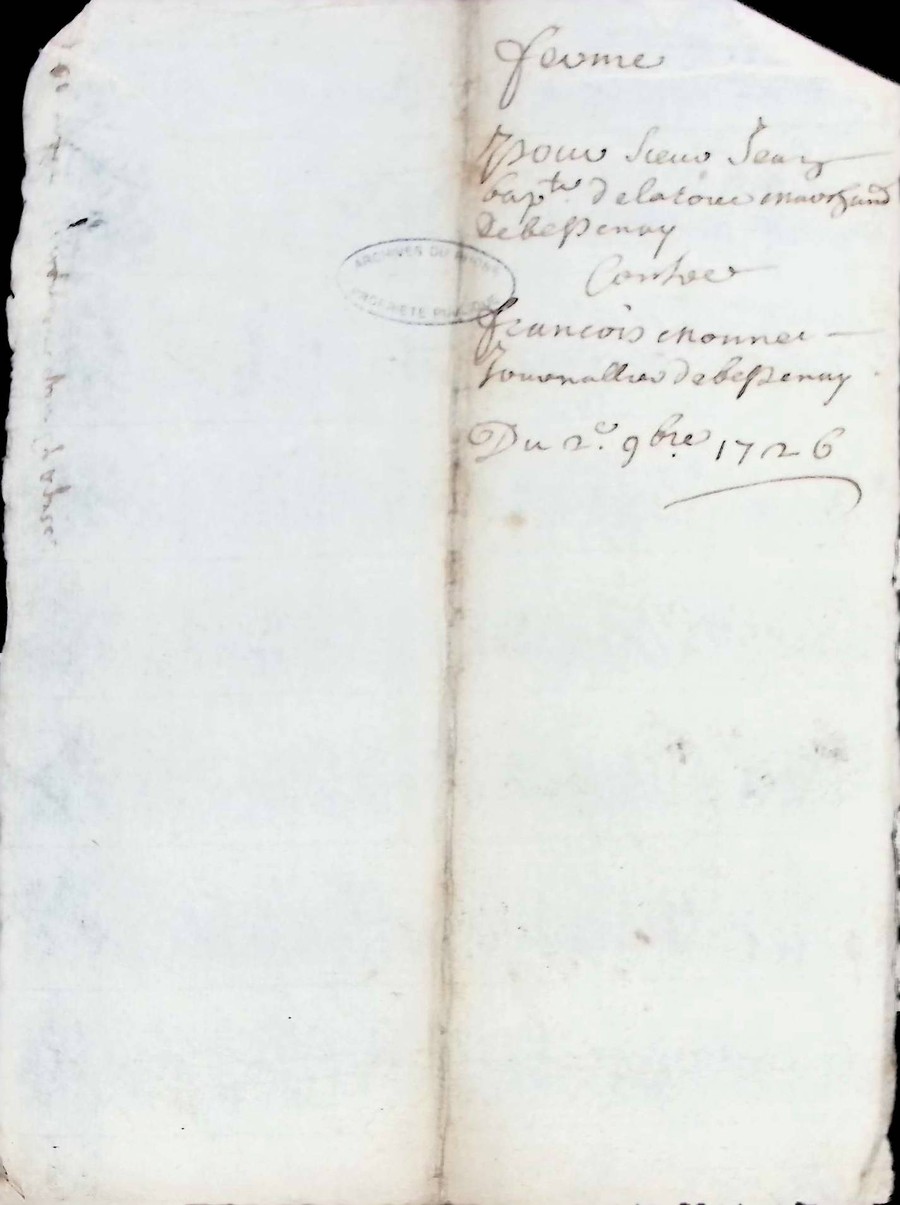 ferme
pour sieur Jean
bapte. delatour marchand
de bessenay
Contre
francois monnet
Journallier de bessenay
Du 2e. 9bre. 1726
ARCHIVES DU RHONE
PROPRIETE PUBLIQUE